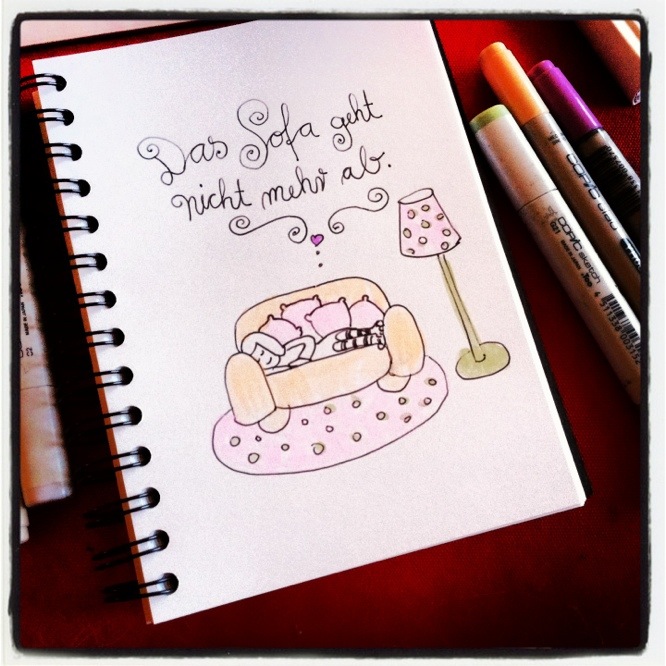 Das Sofa geht
nicht mehr ab.
COPIC sketch
COPIC